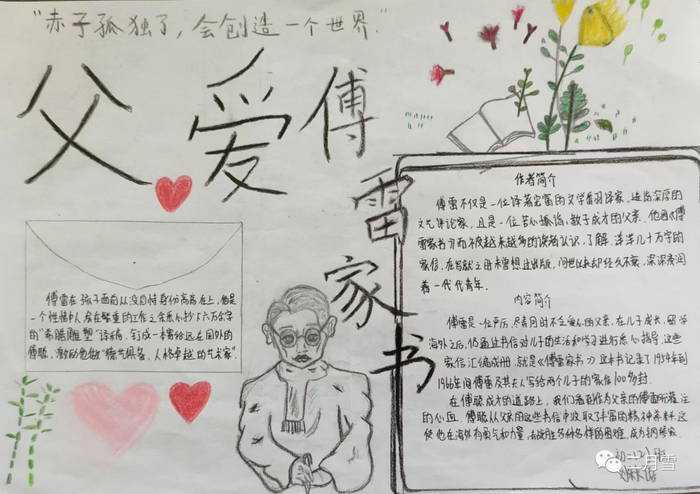 "赤子孤独了,会创造一个世界."
父爱
傅雷家书
作者简介
傅雷不仅是一位译著宏富的文学翻译家,造诣深厚的
文艺评论家,且是一位苦心孤诣,教子成才的父亲.他因《傅
雷家书》而不为越来越多的读者认识,了解.洋洋几十万字的
家信,在写就之时未曾想过出版,问世以来却经久不衰,深深影响
着一代代青年.
内容简介
傅雷是一位严厉,尽责
的父亲,在儿子成长,留学
海外之后,仍通过书信对儿子的生活和学习进行悉心指导,这些
家信汇编成册,就是《傅雷家书》.这本书记录了1954年到
1966年间傅雷及其夫人写给两个儿子的家信100多封.
在傅聪成才的道路上,我们看到作为父亲的傅雷所灌注
的心血.傅聪从父亲的这些书信中汲取了丰富的精神养料,这
使他在海外有勇气和力量,去战胜各种各样的困难,成为钢琴家.
傅雷在孩子面前从没自恃身份高高在上,他是
一个性情中人.
六万余字
的"希腊雕塑"译稿,钉成一本寄给远在国外的
傅聪,激励他做"德艺俱备,人格卓越的艺术家".
二月雪